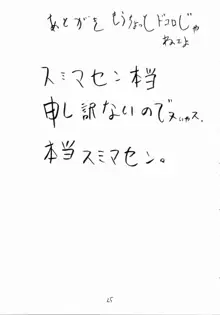 あとがきを もうちょっと ドコロじゃ
ねエよ
スミマセン本当
申し訳ないのでヌいてます。
本当スミマセン。